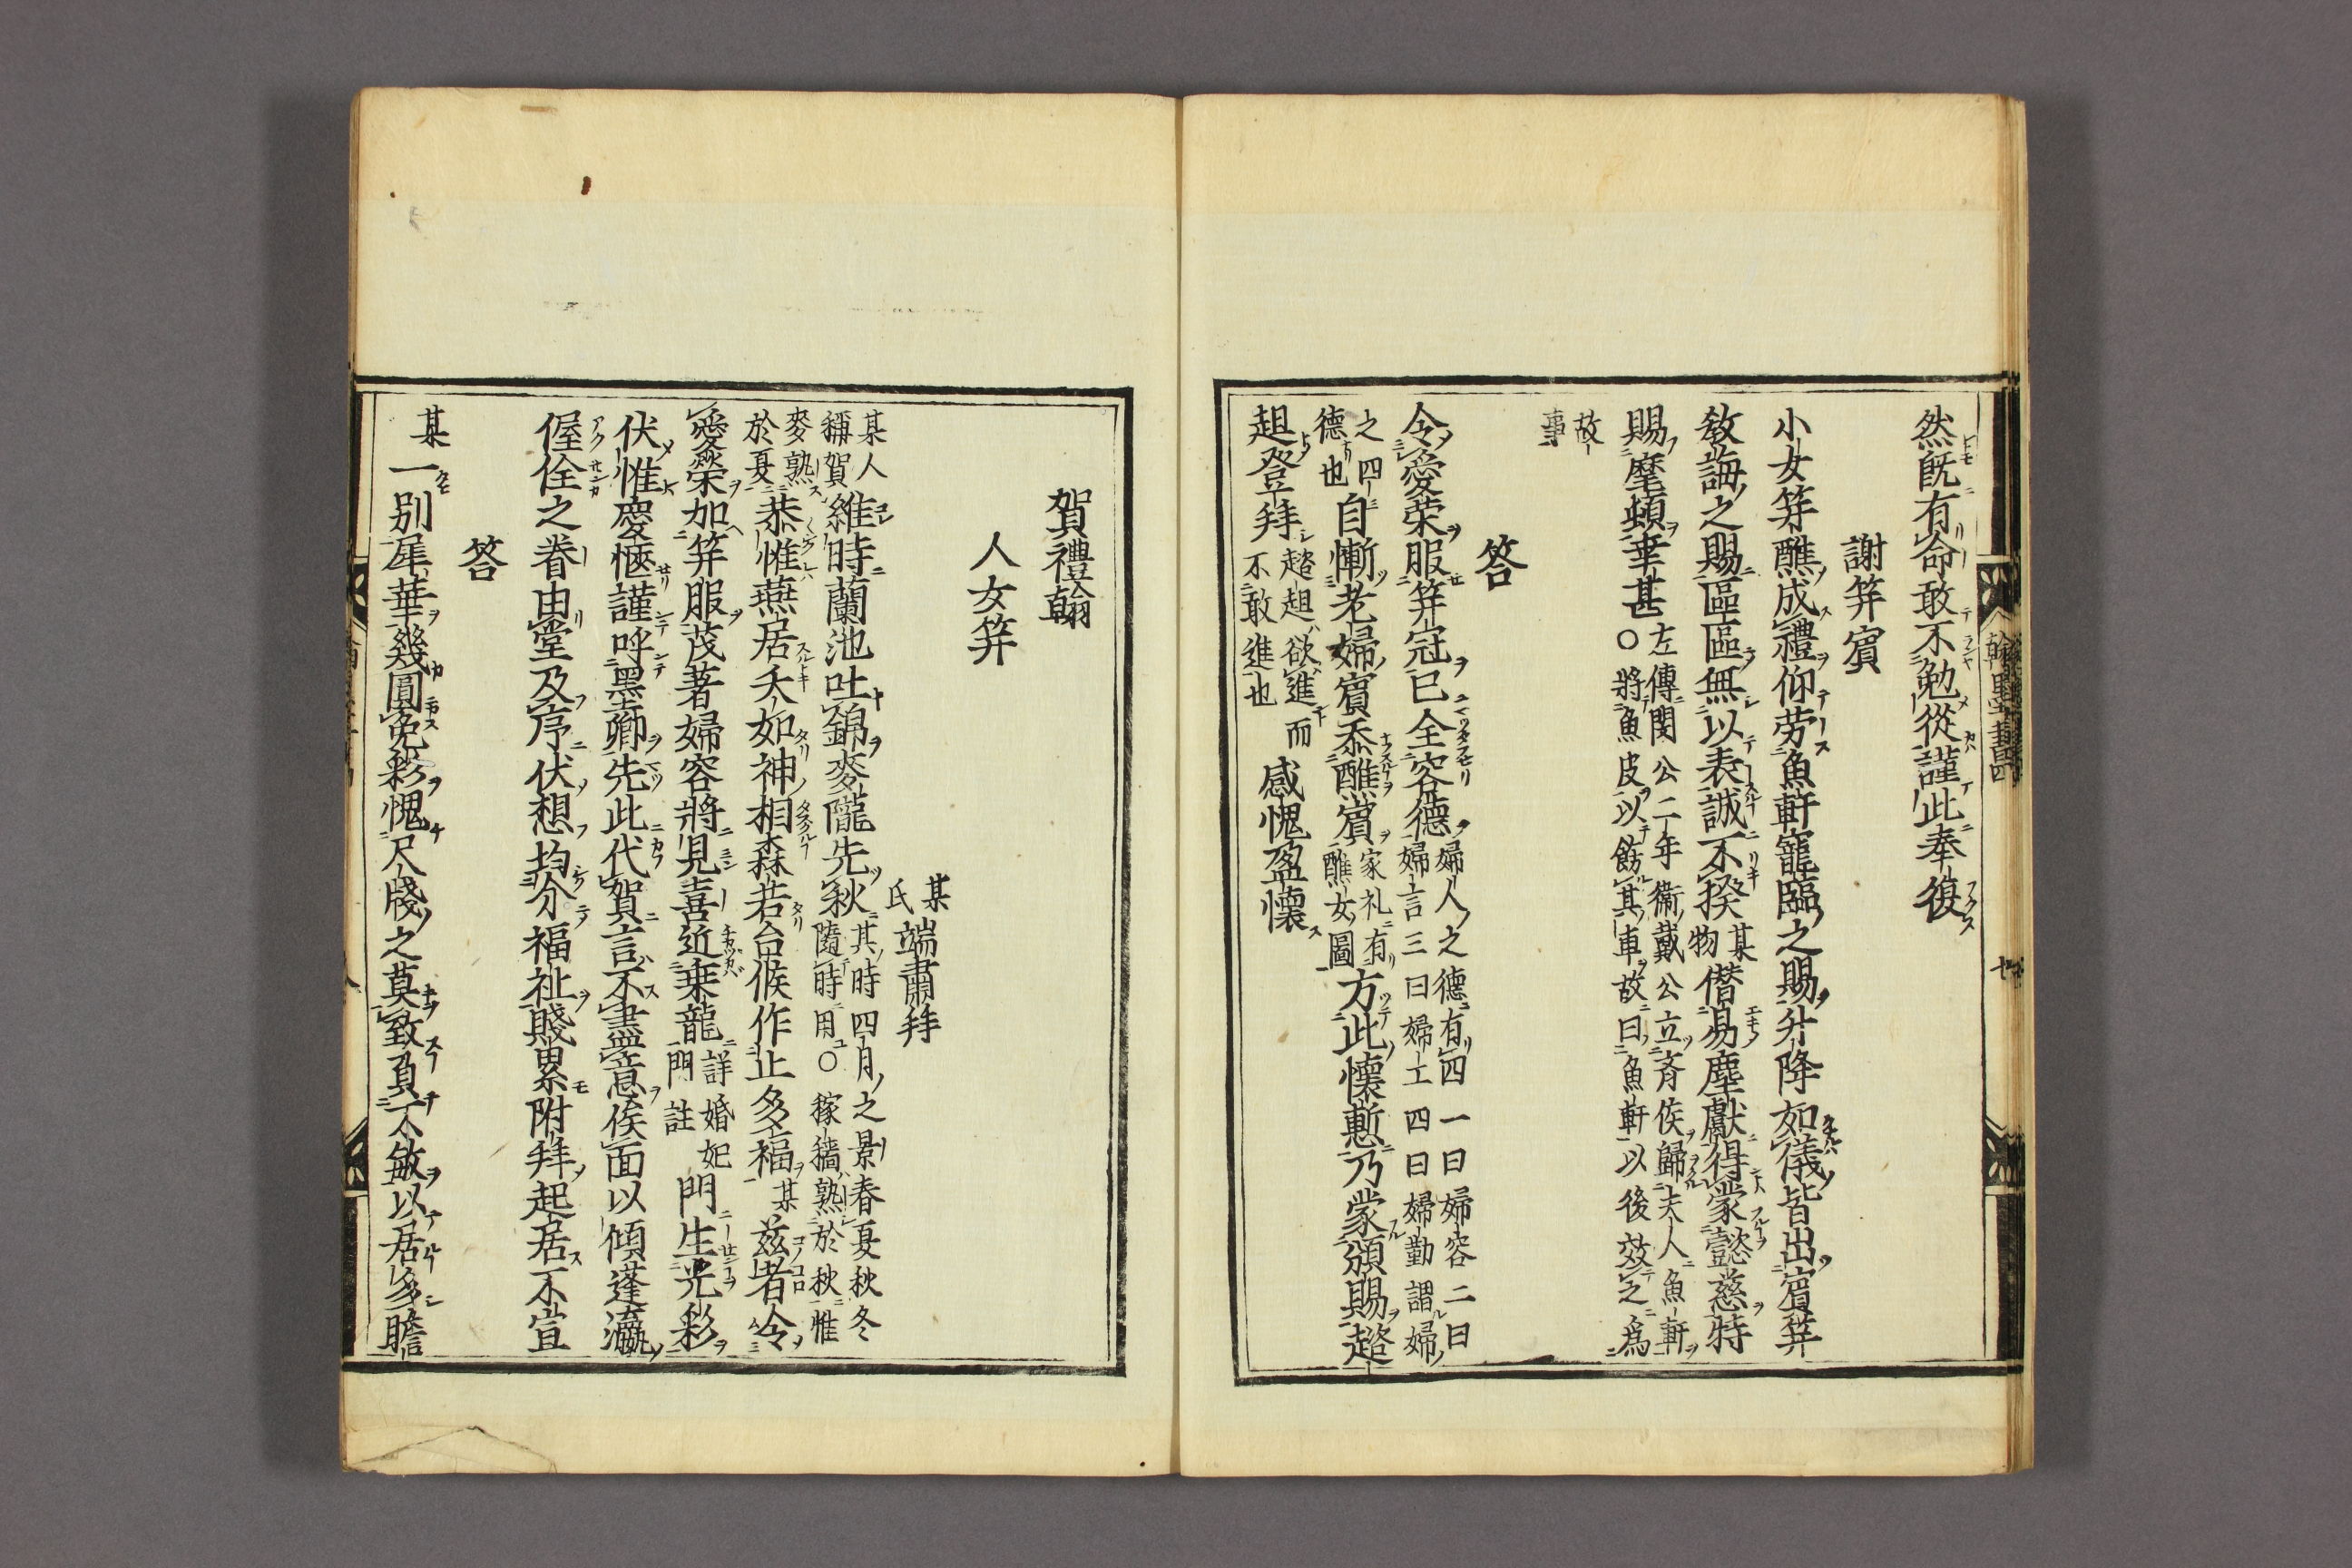 然旣有命敢不勉從謹此奉復
謝笄賓
小女笄醮成禮仰劳魚軒寵臨之賜升降如儀皆出賓笄
敎誨之賜區區無以表誠不揆某物僣易塵獻得蒙懿慈特
賜麾頓幸甚○左傳閔公二年衞戴公立齊侯歸夫人魚軒
將魚皮以飾其車故曰魚軒以後效之爲
故事
答
令愛荣服笄冠已全容德婦人之德有四一曰婦容二曰
婦言三曰婦工四曰婦勤謂婦
之四德也自慚老婦賓忝醮賓家礼有醮女圖方此懷慙乃蒙頒賜趦
趄登拜趦趄欲進而不敢進也感愧盈懷
賀禮翰
人女笄
某氏端肅拜
某人稱賀維時蘭池吐錦麥隴先秋其時四月之景春夏秋冬
隨時用○稼穡熟於秋惟
麥熟於夏恭惟燕居夭如神相森若台候作止多福某兹者令
愛榮加笄服茂著婦容將見喜近乗龍詳婚妃門註門生光彩
伏惟慶愜謹呼墨卿先此代賀言不盡意俟面以傾蓬瀛
偓佺之眷由堂及序伏想均介福祉賤累附拜起居不宣
答
某一別犀華幾圓兎彩愧尺牋之莫致負不敏以居多瞻